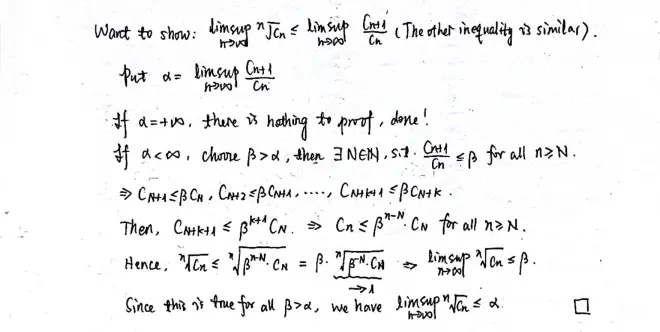 Want to show: limsup_{n→∞} ⁿ√Cn ≤ limsup_{n→∞} Cn+1/Cn (The other inequality is similar).
Put α = limsup_{n→∞} Cn+1/Cn
If α=+∞, there is nothing to proof, done!
If α<∞, choose β>α, then ∃N∈ℕ, s.t. Cn+1/Cn ≤ β for all n≥N.
⇒ CN+1≤βCN, CN+2≤βCN+1, ...., CN+k+1≤βCN+k.
Then, CN+k+1 ≤ β^{k+1} CN. ⇒ Cn ≤ β^{n-N}·CN for all n≥N.
Hence, ⁿ√Cn ≤ ⁿ√(β^{n-N}·CN) = β·ⁿ√(β^{-N}·CN) ⇒ limsup_{n→∞} ⁿ√Cn ≤ β.
→1
Since this is true for all β>α, we have limsup_{n→∞} ⁿ√Cn ≤ α. □